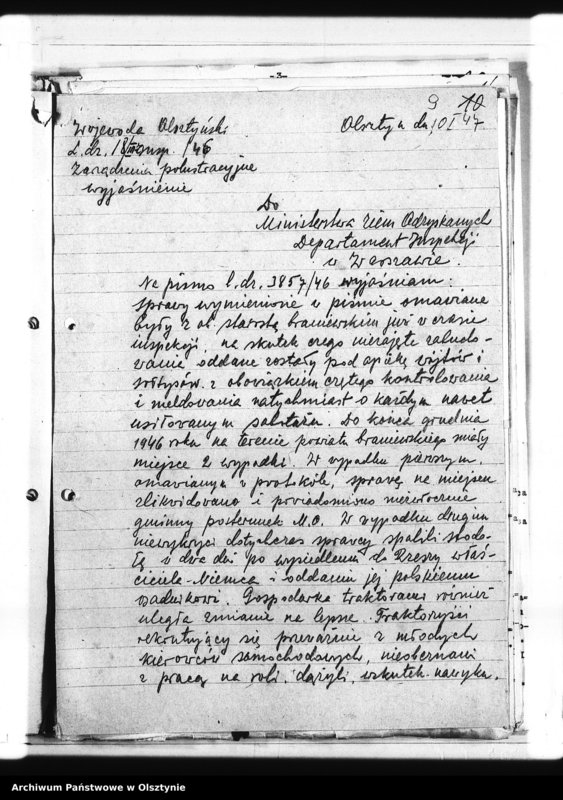 -3-
9 10
Wojewoda Olsztyński
Olsztyn dn. 10 I 47
L. dz. /46
Zarządzenia polustracyjne
wyjaśnienie
Do
Ministerstwa Ziem Odzyskanych
Departament Inspekcji
w Warszawie.
Na pismo l. dz. 3857/46 wyjaśniam:
Sprawy wymienione w piśmie omawiane
były z ob. starostą braniewskim już w czasie
inspekcji, na skutek czego niezajęte zabudo-
wania oddane zostały pod opiekę wójtów i
sołtysów z obowiązkiem częstego kontrolowania
i meldowania natychmiast o każdym nawet
usiłowanym sabotażu. Do końca grudnia
1946 roku na terenie powiatu braniewskiego miały
miejsce 2 wypadki. W wypadku pierwszym,
omawianym w protokóle, sprawę na miejscu
zlikwidowano i powiadomiono niezwłocznie
gminny posterunek M.O. W wypadku drugim
niewykryci dotychczas sprawcy spalili stodo-
łę w dwa dni po wysiedleniu do Rzeszy właś-
ciciela-Niemca i oddaniu jej polskiemu
osadnikowi. Gospodarka traktorami również
uległa zmianie na lepsze. Traktorzyści
rekrutujący się przeważnie z młodych
kierowców samochodowych, nieobeznani
z pracą na roli, dążyli, wskutek nawyku,
Archiwum Państwowe w Olsztynie